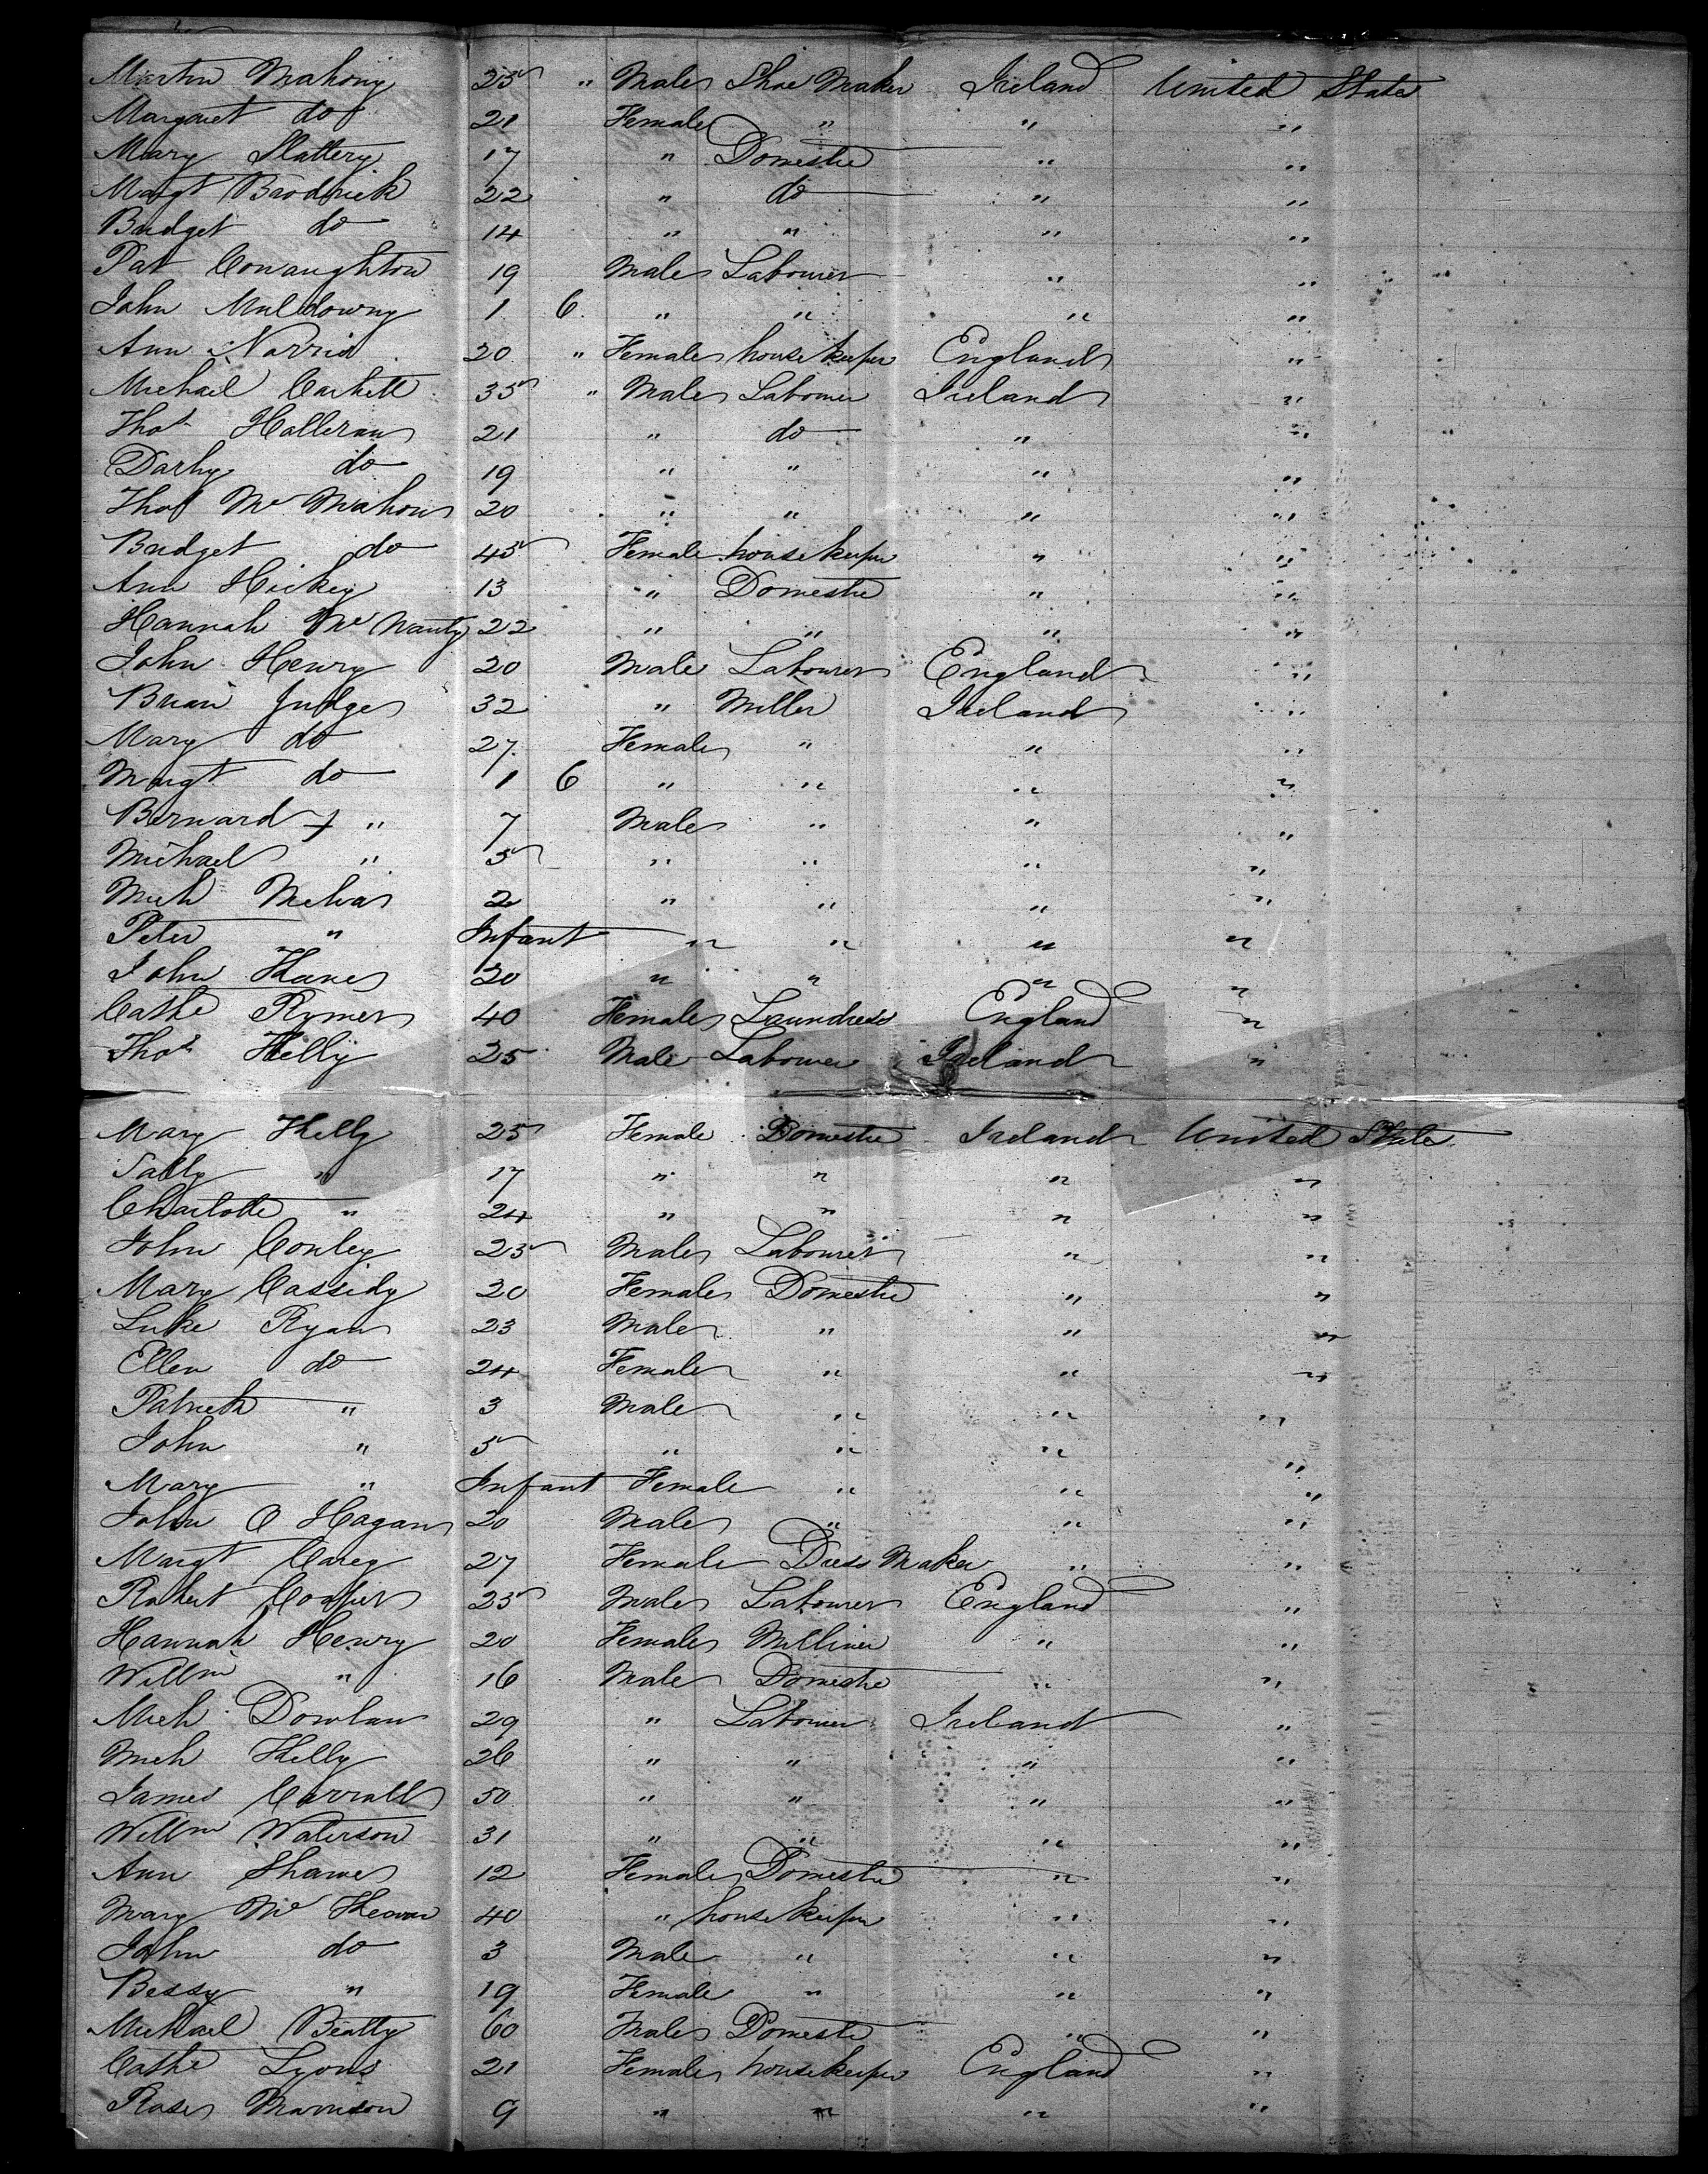 Martin Mahony 25 " Male Shoe Maker Ireland United States
Margaret do 21 Female " " "
Mary Slattery 17 " Domestic " "
Margt Brodrick 22 " do " "
Bridget do 14 " " " "
Pat Conaughton 19 Male Labourer " "
John Muldowny 1 6 " " " "
Ann Norris 20 " Female house keeper England "
Michael Corbett 35 " Male Labourer Ireland "
Thos Holleran 21 " do " "
Darby do 19 " " " "
Thos Mc Mahon 20 " " " "
Bridget do 45 Female house keeper " "
Ann Hickey 13 " Domestic " "
Hannah Mc 22 " " " "
John Henry 20 Male Labourer England "
Brian Judge 32 " Miller Ireland "
Mary do 27 Female " " "
Margt do 1 6 " " " "
Bernard " 7 Male " " "
Michael " 5 " " " "
Mich 2 " " " "
Peter " Infant " " " "
John Kane 20 " " " "
Cathe Rymer 40 Female Laundress England "
Thos Kelly 25 Male Labourer Ireland "
Mary Kelly 25 Female Domestic Ireland United States
Sally " 17 " " " "
Charlotte " 24 " " " "
John Conley 25 Male Labourer " "
Mary Cassidy 20 Female Domestic " "
Luke Ryan 23 Male " " "
Ellen do 24 Female " " "
Patrick " 3 Male " " "
John " 5 " " " "
Mary " Infant Female " " "
John O Hagan 20 Male " " "
Margt Carey 27 Female Dress Maker " "
Robert Cooper 25 Male Labourer England "
Hannah Henry 20 Female Milliner " "
Willm " 16 Male Domestic " "
Mich Dowlan 29 " Labourer Ireland "
Mich Kelly 26 " " " "
James Carroll 50 " " " "
Willm Waterson 31 " " " "
Ann Shawe 12 Female Domestic " "
Mary Mc 40 " house keeper " "
John do 3 Male " " "
Bessy " 19 Female " " "
Michael Beatty 60 Male Domestic " "
Cathe Lyons 21 Female housekeeper England "
Rose 9 " " " "